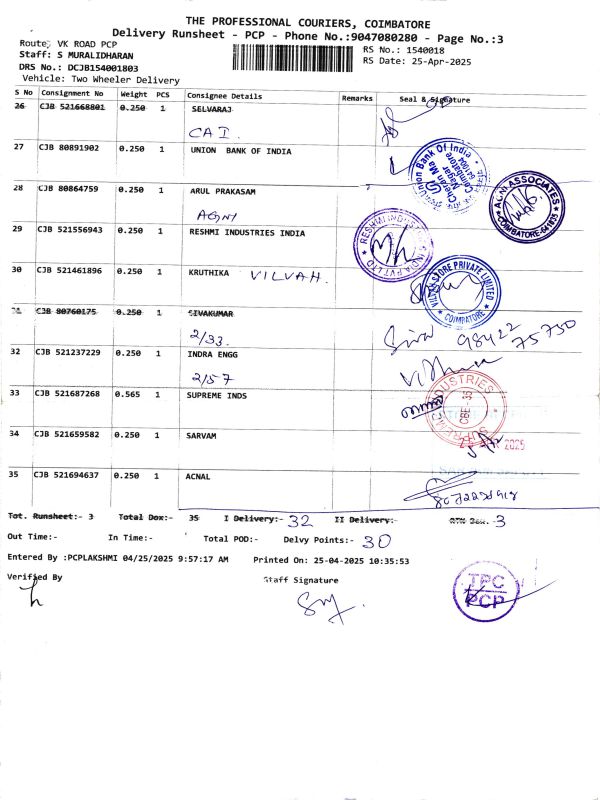 THE PROFESSIONAL COURIERS, COIMBATORE
Delivery Runsheet - PCP - Phone No.:9047080280 - Page No.:3
Route: VK ROAD PCP
RS No.: 1540018
Staff: S MURALIDHARAN
RS Date: 25-Apr-2025
DRS No.: DCJB154001803
Vehicle: Two Wheeler Delivery
S No Consignment No Weight PCS Consignee Details Remarks Seal & Signature
26 CJB 521668801 0.250 1 SELVARAJ
CAI.
27 CJB 80891902 0.250 1 UNION BANK OF INDIA
Union Bank Of India
Cheran Ma Nagar
Coimbatore
28 CJB 80864759 0.250 1 ARUL PRAKASAM
AGNI
AGNI ASSOCIATES
COIMBATORE-641035
29 CJB 521556943 0.250 1 RESHMI INDUSTRIES INDIA
RESHMI INDUSTRIES INDIA PVT LTD
30 CJB 521461896 0.250 1 KRUTHIKA VILVAH.
VILVAH STORE PRIVATE LIMITED
COIMBATORE
31 CJB 80760175 0.250 1 SIVAKUMAR
2/33.
Siva 98422 75750
32 CJB 521237229 0.250 1 INDRA ENGG
2/57
33 CJB 521687268 0.565 1 SUPREME INDS
SUPREME INDUSTRIES
CBE-35
34 CJB 521659582 0.250 1 SARVAM
2025
35 CJB 521694637 0.250 1 ACNAL
Tot. Runsheet:- 3 Total Dox:- 35 I Delivery:- 32 II Delivery:- RTN Dox.- 3
Out Time:- In Time:- Total POD:- Delvy Points:- 30
Entered By :PCPLAKSHMI 04/25/2025 9:57:17 AM Printed On: 25-04-2025 10:35:53
Verified By Staff Signature
TPC
PCP